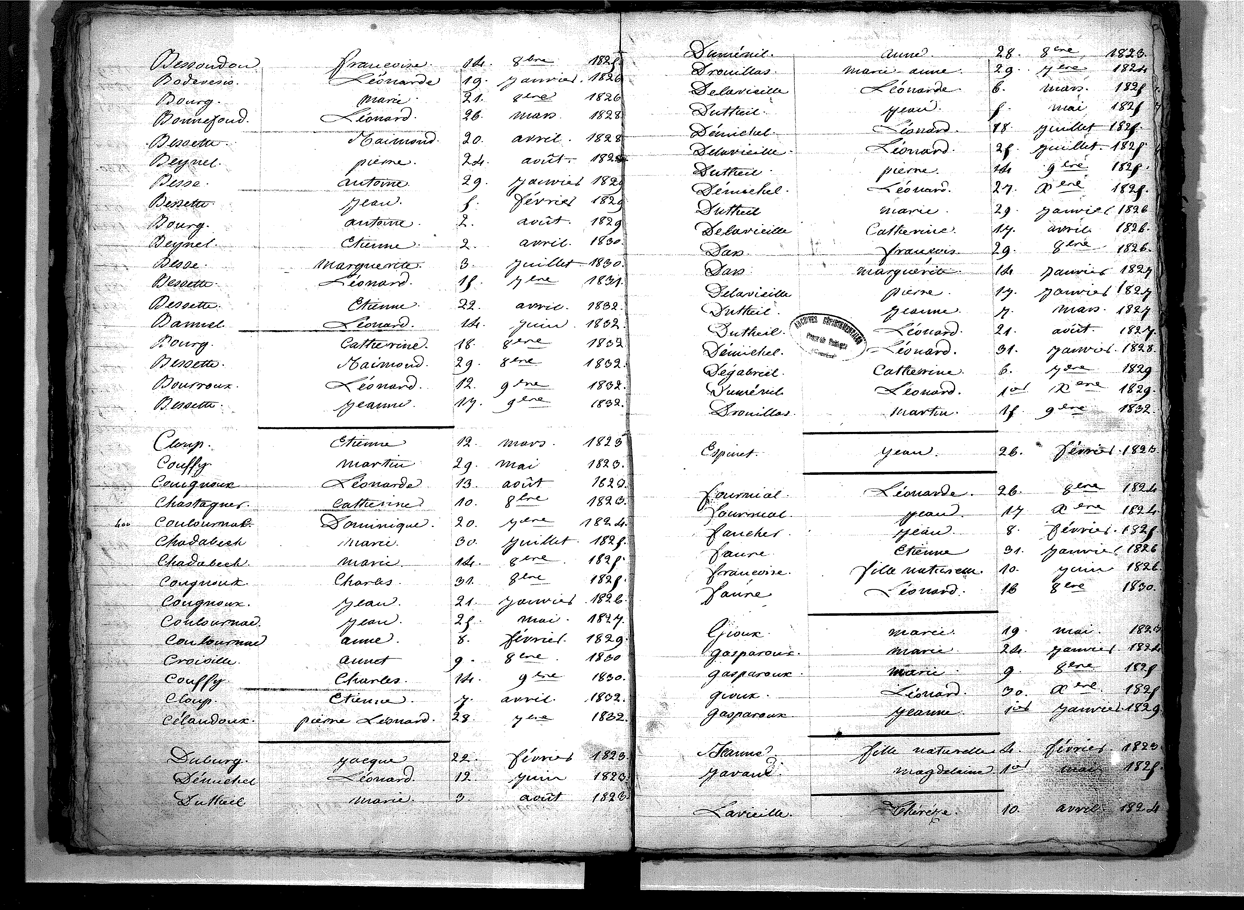 Bessoudou françoise 14. 8bre 1825.
Badeveris Léonarde 19. janvier 1826
Bourg. marie 21. 8bre 1826
Bonnefond. Léonard. 26. mars 1828
Bessette. Raimond. 20. avril. 1828
Beynel pierre 24. août. 1828
Besse. antoine 29. janvier 1829
Bessette jean 5. février 1829
Bourg. antoine 2. août. 1829
Beynel Etienne 2. avril. 1830.
Besse. marguerite. 3. juillet 1830.
Bessette Léonard. 15. 7bre 1831.
Bessette Etienne 22. avril. 1832.
Léonard. 14. juin 1832.
Bourg. Catherine 18. 8bre 1832
Bessette. Raimond. 29. 8bre 1832.
Bourroux. Léonard. 12. 9bre 1832.
Bessette. jeanne. 17. 9bre 1832.
Cloup. Etienne 12. mars. 1823
Couffy martin 29. mai 1823.
Cougnoux Léonarde 13. août 1823.
Chastagner. Catherine 10. 8bre 1823.
400 Coulournat Dominique. 20. 7bre 1824.
Chadabech marie. 30. juillet 1825.
Chadabech. marie 14. 8bre 1825.
Cougnoux. Charles. 31. 8bre 1825.
Cougnoux. jean. 21. janvier 1826.
Coulournac. jean. 25. mai. 1827.
Coulournac anne. 8. février. 1829.
Croiville. annet 9. 8bre 1830
Couffy Charles. 14. 9bre 1830.
Cloup. Etienne 7. avril. 1832.
Célaudoux. pierre Léonard. 28. 7bre 1832.
Duburg. jacque 22. février 1823.
Dénichel Léonard 12. juin 1823.
Dutheil marie. 3. août 1823.
Duménil. anne 28. 8bre 1823.
Drouillas marie anne. 29. 7bre 1824
Delavieille Léonarde 6. mars. 1825
Dutheil jean. 5. mai 1825
Dénichel. Léonard. 18. juillet 1825.
Delavieille. Léonard. 25. juillet. 1825.
Dutheil. pierre. 14 9bre 1825.
Dénichel. Léonard. 27. Xbre 1825.
Dutheil marie. 29. janvier 1826
Delavieille Catherine. 17. avril 1826.
Das françois. 29. 8bre 1826.
Das. marguérite. 14. janvier 1827
Delavieille pierre. 17. janvier 1827
Dutheil. jeanne. 7. mars. 1827
Dutheil. Léonard. 21. août. 1827.
Dénichel. Léonard. 31. janvier. 1828.
Dégabriel. Catherine. 6. 7bre 1829
Duménil Léonard. 1er Xbre 1829.
Drouillas martin. 15. 9bre 1832.
Espinet jean. 26. février. 1823.
fournial. Léonarde. 26. 8bre 1824
fournial. jean. 17 Xbre 1824.
faucher jean. 8. février. 1825.
faure Etienne 31. janvier 1826
francoise. fille naturelle 10. juin 1826.
faure Léonard. 16 8bre 1830.
Gioux. marie. 19. mai. 1823
gasparoux. marie 24. janvier 1824
gasparoux. marie. 9 8bre 1825
gioux. Léonard. 30. Xbre 1825
gasparoux jeanne. 1er janvier 1829
Jeanne fille naturelle 4. février. 1823.
magdelaine. 1er mai 1825.
Lavieille. thérèse. 10. avril. 1824
ARCHIVES DÉPARTEMENTALES